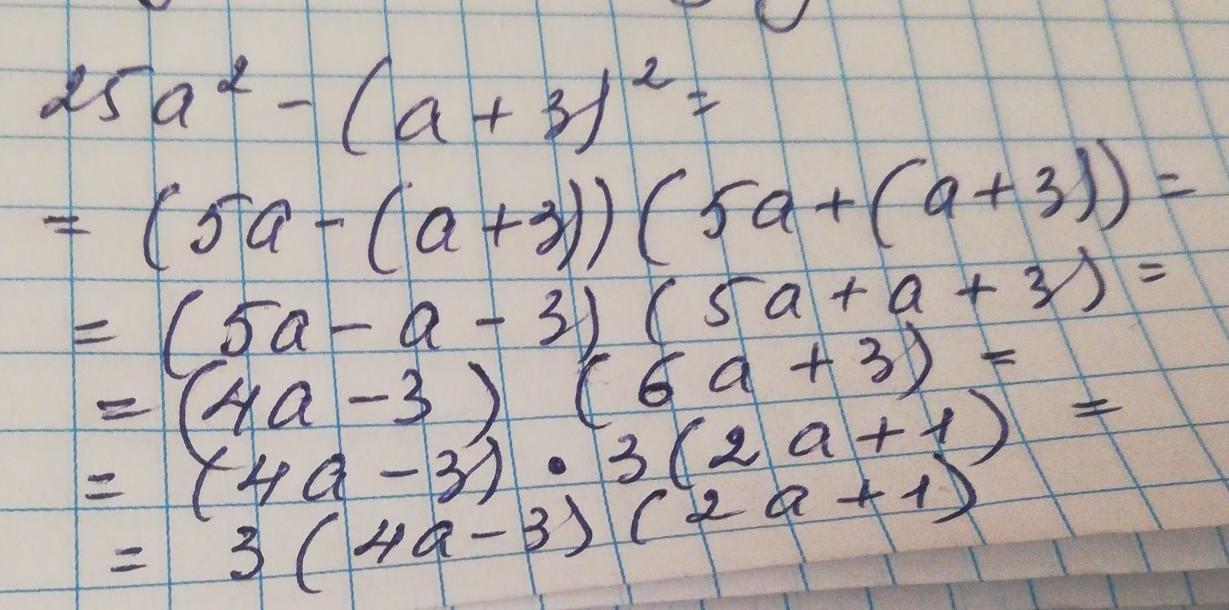 25a² - (a + 3)² =
= (5a - (a + 3)) (5a + (a + 3)) =
= (5a - a - 3) (5a + a + 3) =
= (4a - 3) (6a + 3) =
= (4a - 3) • 3(2a + 1) =
= 3(4a - 3) (2a + 1)